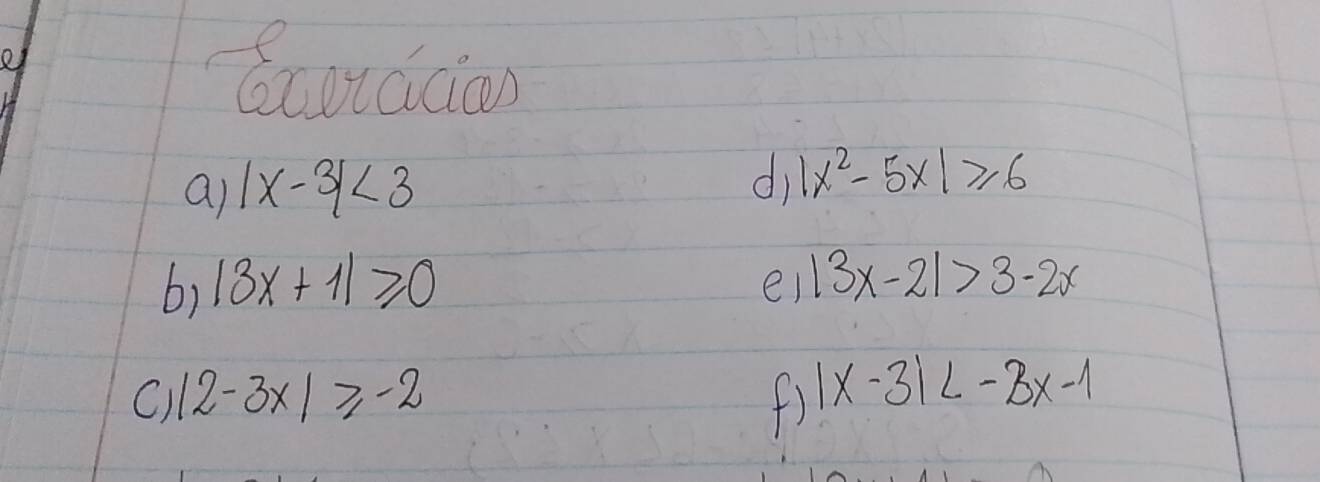 Exercícios
a) |x-3|<3
b) |3x+1| ≥ 0
c) |2-3x| ≥ -2
d) |x²-5x| ≥ 6
e) |3x-2| > 3-2x
f) |x-3| < -3x-1